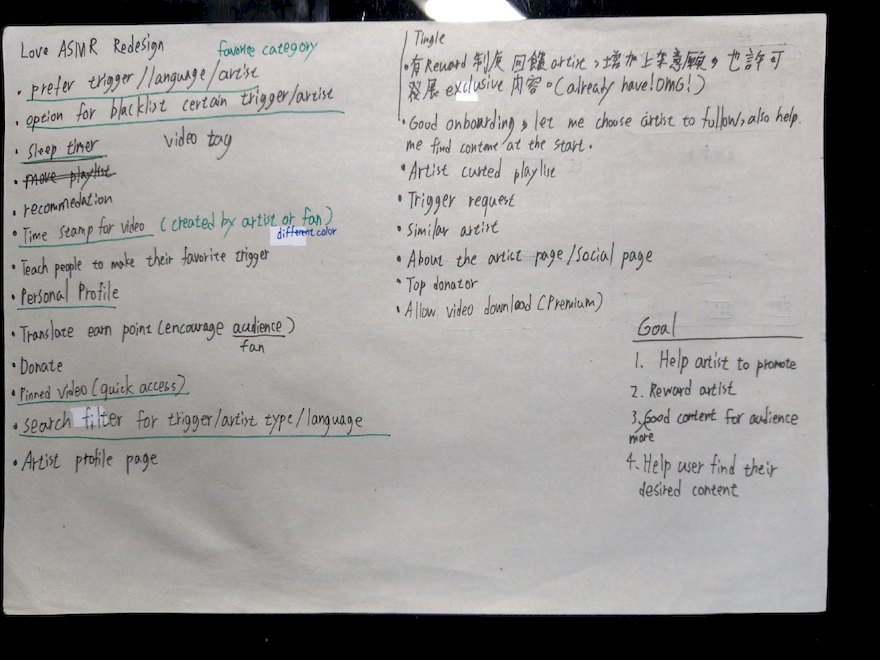 Love ASMR Redesign
favorite category
• prefer trigger/language/artist
• option for blacklist certain trigger/artist
• Sleep timer
video tag
• move playlist
• recommedation
• Time stamp for video (created by artist or fan)
different color
• Teach people to make their favorite trigger
• Personal Profile
• Translate earn point (encourage audience)
fan
• Donate
• Pinned video (quick access)
• search filter for trigger/artist type/language
• Artist profile page
Tingle
• 有Reward 制度 回饋 artist，增加上架意願，也許可
發展 exclusive 內容。(already have! OMG!)
• Good onboarding, let me choose artist to follow, also help
me find content at the start.
• Artist curted playlist
• Trigger request
• Similar artist
• About the artist page/Social page
• Top donator
• Allow video download (Premium)
Goal
1. Help artist to promote
2. Reward artist
3. Good content for audience
more
4. Help user find their
desired content